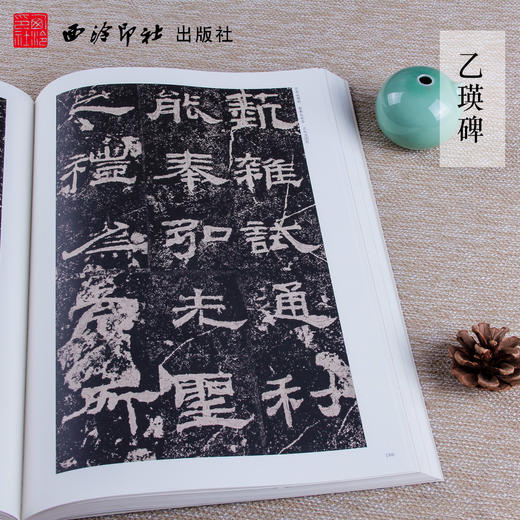 西泠印社
西泠印社 出版社
乙瑛碑
蓺雜試通利
能奉弘先聖
之禮為宗所